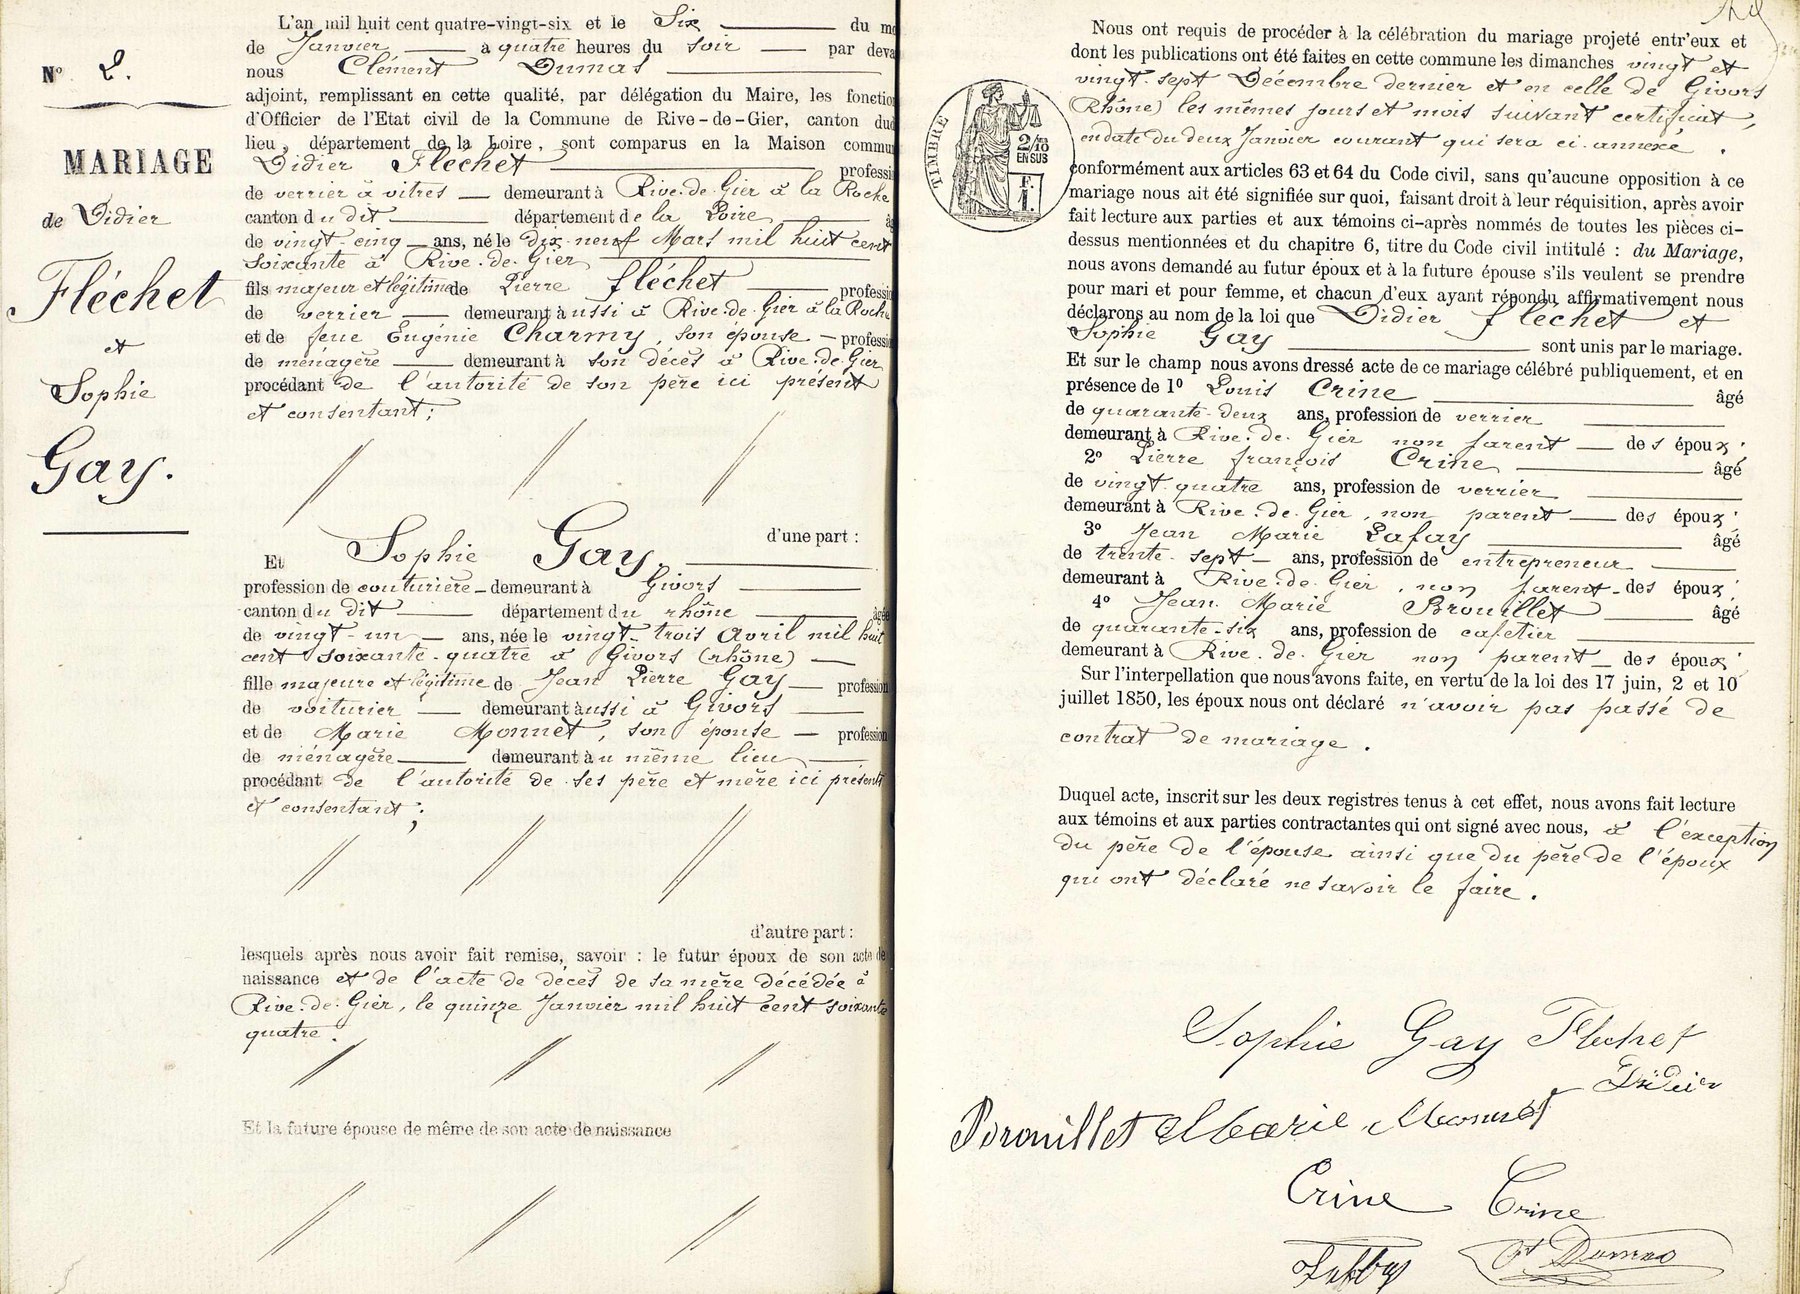 Nº 2.
MARIAGE
de Didier
Fléchet
et
Sophie
Gay.
L'an mil huit cent quatre-vingt-six et le Six du mo
de Janvier à quatre heures du soir par deva
nous Clément Dumas
adjoint, remplissant en cette qualité, par délégation du Maire, les fonction
d'Officier de l'Etat civil de la Commune de Rive-de-Gier, canton dud
lieu, département de la Loire, sont comparus en la Maison commun
Didier Fléchet professi
de verrier à vitres demeurant à Rive-de-Gier à la Roche
canton du dit département de la Loire âg
de vingt-cinq ans, né le dix-neuf Mars mil huit cent
soixante à Rive-de-Gier
fils majeur et légitime de Pierre Fléchet professi
de verrier demeurant aussi à Rive-de-Gier à la Roche
et de feue Eugénie Charmy, son épouse professi
de ménagère demeurant à son décès à Rive-de-Gier
procédant de l'autorité de son père ici présent
et consentant;
d'une part :
Et Sophie Gay,
profession de couturière demeurant à Givors
canton du dit département du rhône âgée
de vingt-un ans, née le vingt-trois Avril mil huit
cent soixante-quatre à Givors (rhône)
fille majeure et légitime de Jean Pierre Gay profession
de voiturier demeurant aussi à Givors
et de Marie Monnet, son épouse profession
de ménagère demeurant au même lieu
procédant de l'autorité de ses père et mère ici présents
et consentant;
d'autre part :
lesquels après nous avoir fait remise, savoir : le futur époux de son acte de
naissance et de l'acte de décès de sa mère décédée à
Rive-de-Gier, le quinze Janvier mil huit cent soixante
quatre.
Et la future épouse de même de son acte de naissance
TIMBRE
2/10
EN SUS
F.
1.
Nous ont requis de procéder à la célébration du mariage projeté entr'eux et
dont les publications ont été faites en cette commune les dimanches vingt et
vingt-sept Décembre dernier et en celle de Givors
(Rhône) les mêmes jours et mois suivant certificat,
en date du deux Janvier courant qui sera ci-annexé.
conformément aux articles 63 et 64 du Code civil, sans qu'aucune opposition à ce
mariage nous ait été signifiée sur quoi, faisant droit à leur réquisition, après avoir
fait lecture aux parties et aux témoins ci-après nommés de toutes les pièces ci-
dessus mentionnées et du chapitre 6, titre du Code civil intitulé : du Mariage,
nous avons demandé au futur époux et à la future épouse s'ils veulent se prendre
pour mari et pour femme, et chacun d'eux ayant répondu affirmativement nous
déclarons au nom de la loi que Didier Fléchet et
Sophie Gay sont unis par le mariage.
Et sur le champ nous avons dressé acte de ce mariage célébré publiquement, et en
présence de 1º Louis Crine âgé
de quarante-deux ans, profession de verrier
demeurant à Rive-de-Gier non parent des époux;
2º Pierre françois Crine âgé
de vingt-quatre ans, profession de verrier
demeurant à Rive-de-Gier, non parent des époux;
3º Jean Marie Lafay âgé
de trente-sept ans, profession de entrepreneur
demeurant à Rive-de-Gier, non parent des époux;
4º Jean Marie Brouillet âgé
de quarante-six ans, profession de cafetier
demeurant à Rive-de-Gier non parent des époux;
Sur l'interpellation que nous avons faite, en vertu de la loi des 17 juin, 2 et 10
juillet 1850, les époux nous ont déclaré n'avoir pas passé de
contrat de mariage.
Duquel acte, inscrit sur les deux registres tenus à cet effet, nous avons fait lecture
aux témoins et aux parties contractantes qui ont signé avec nous, à l'exception
du père de l'épouse ainsi que du père de l'époux
qui ont déclaré ne savoir le faire.
Sophie Gay Flechet
Didier
Brouillet Marie Monnet
Crine Crine
Ct Dumas